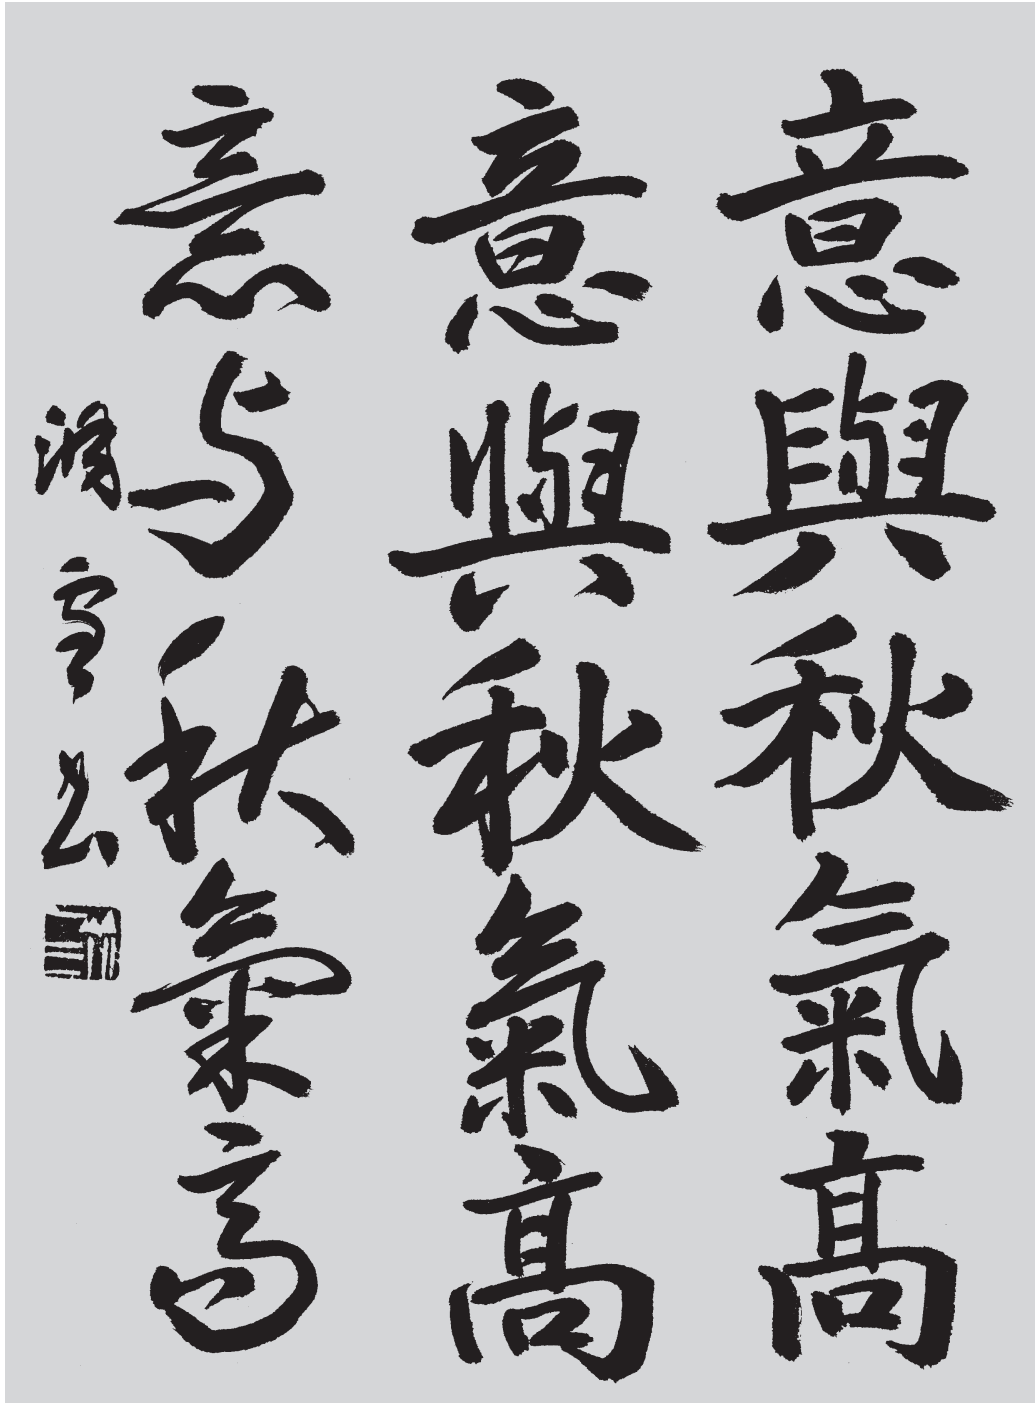 意與秋氣高
意與秋氣高
意与秋氣高
雪書